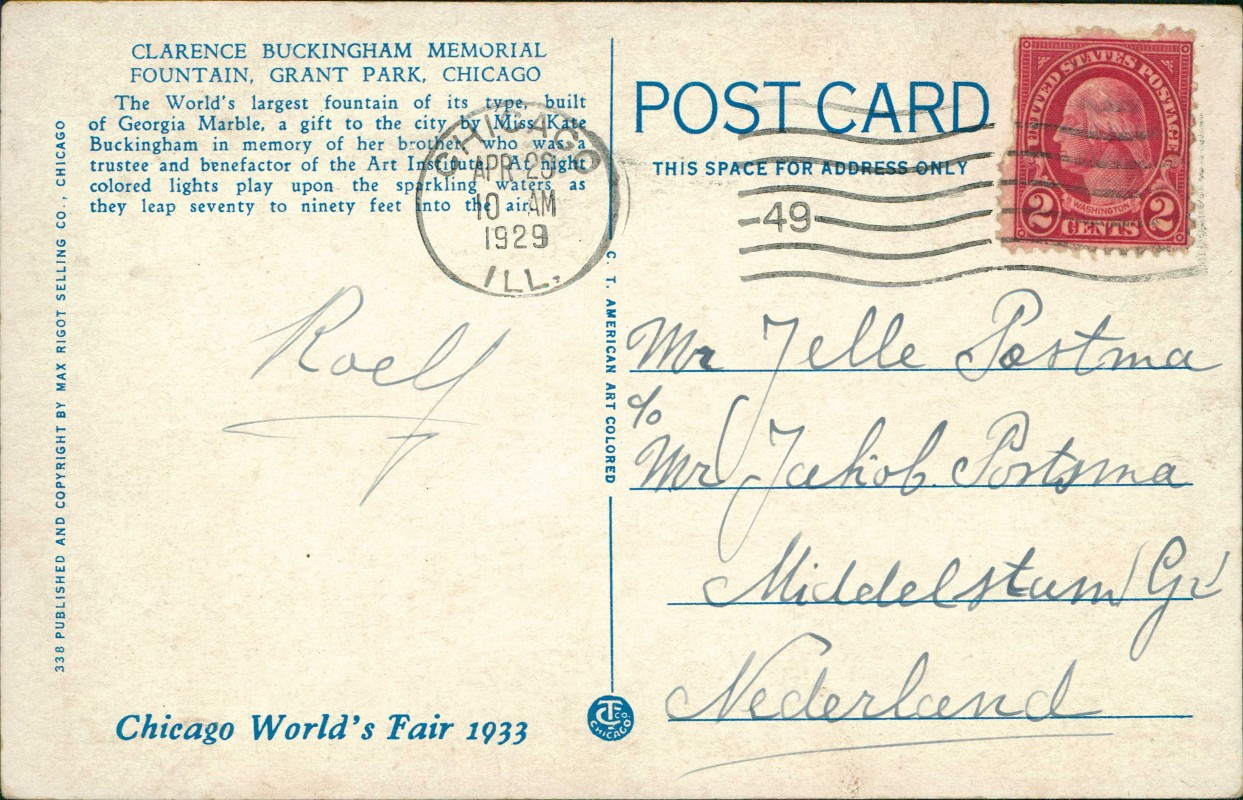 CLARENCE BUCKINGHAM MEMORIAL
FOUNTAIN, GRANT PARK, CHICAGO
The World's largest fountain of its type, built
of Georgia Marble, a gift to the city by Miss Kate
Buckingham in memory of her brother, who was a
trustee and benefactor of the Art Institute. At night
colored lights play upon the sparkling waters as
they leap seventy to ninety feet into the air.
338 PUBLISHED AND COPYRIGHT BY MAX RIGOT SELLING CO., CHICAGO
CHICAGO
APR 29
10 AM
1929
ILL.
Roelf
Chicago World's Fair 1933
C. T. AMERICAN ART COLORED
CT CO. CHICAGO
POST CARD
THIS SPACE FOR ADDRESS ONLY
49
UNITED STATES POSTAGE
WASHINGTON
2 CENTS 2
Mr Jelle Postma
c/o
Mr Jakob Portsma
Middelstum (Gr)
Nederland